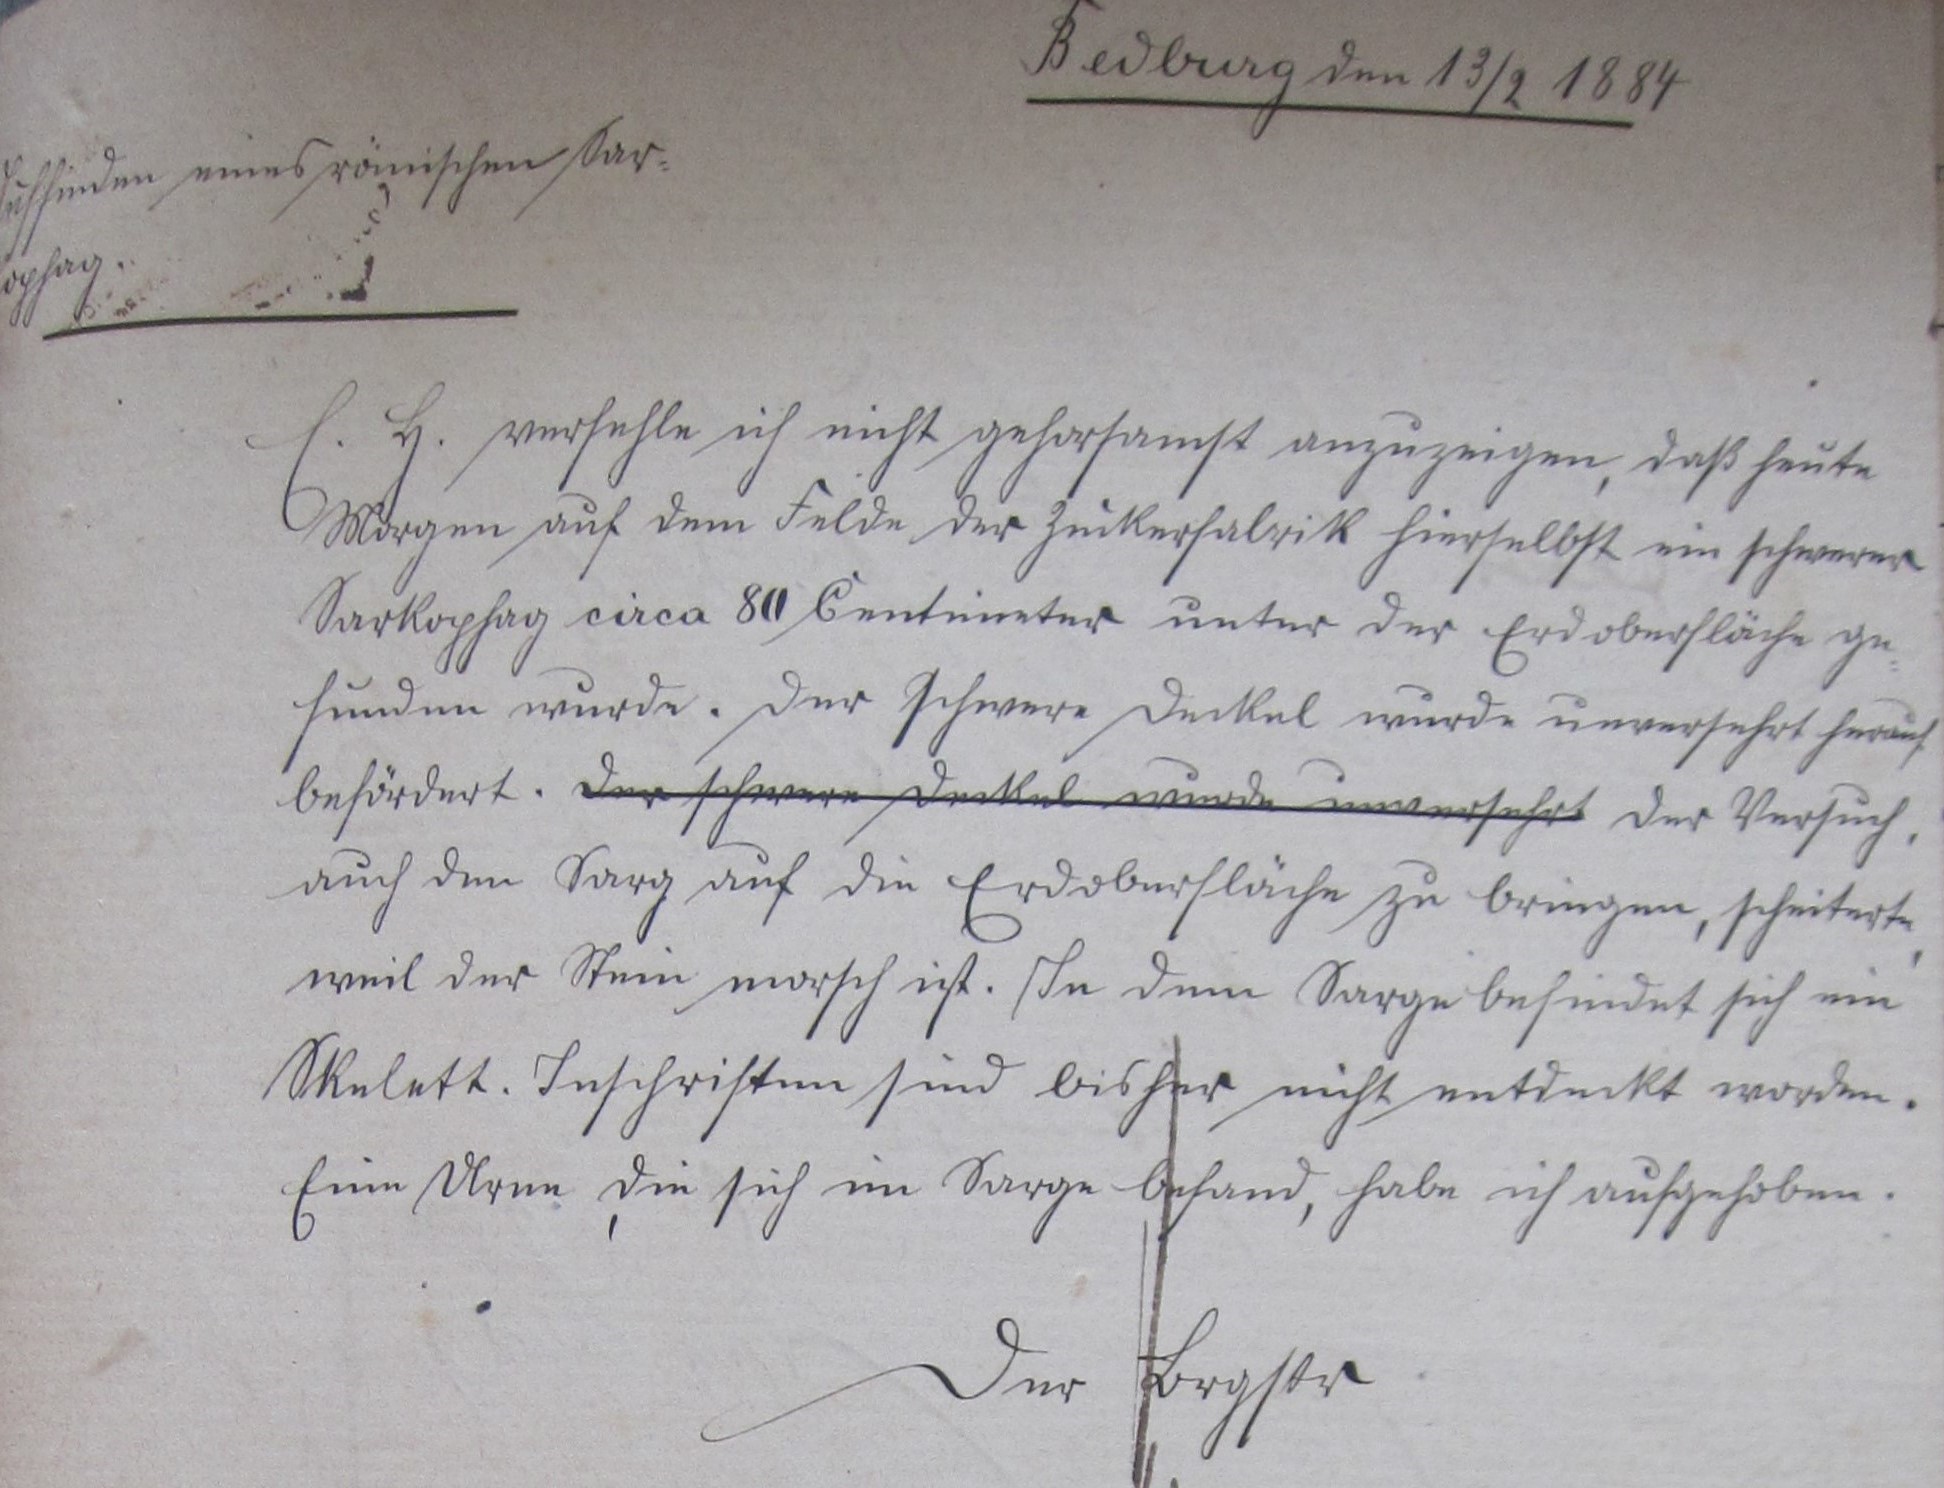 Bedburg den 13/2 1884
Auffinden eines römischen Sar-
kophag.
E. H. verfehle ich nicht gehorsamst anzuzeigen, daß heute
Morgen auf dem Felde der Zuckerfabrik hierselbst ein schwerer
Sarkophag circa 80 Centimeter unter der Erdoberfläche ge-
funden wurde. Der schwere Deckel wurde unversehrt herauf
befördert. Der schwere Deckel wurde unversehrt Der Versuch,
auch den Sarg auf die Erdoberfläche zu bringen, scheiterte,
weil der Stein morsch ist. In dem Sarge befindet sich ein
Skelett. Inschriften sind bisher nicht entdeckt worden.
Eine Urne, die sich im Sarge befand, habe ich aufgehoben.
Der Brgstr